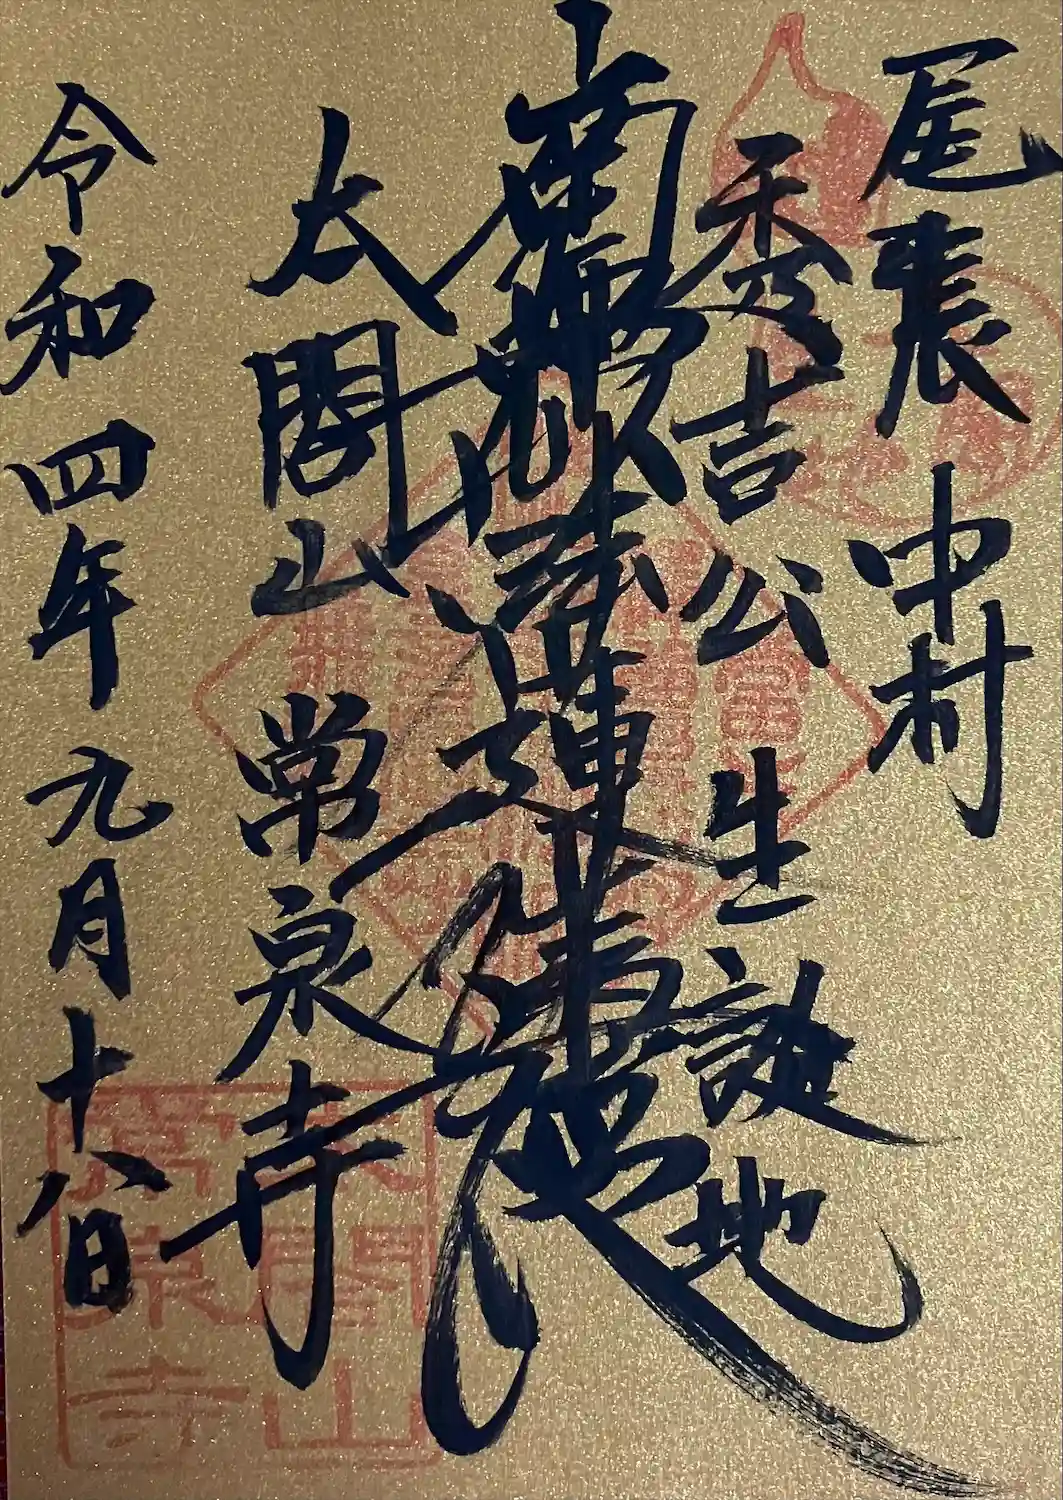 尾張 中村
秀吉公 生誕地
南無妙法蓮華経
太閤山 常泉寺
令和四年 九月十八日
太閤山
常泉寺